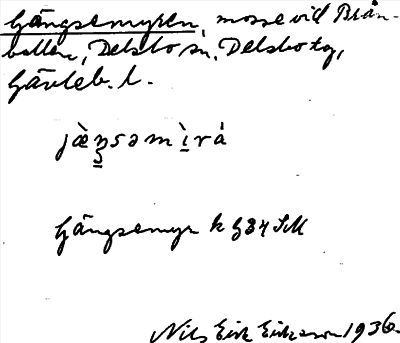 Gängsemyren, mosse vid Brån-
bollen, Delsbo sn, Delsbo tg,
Gävleb. l.
jæ̀ŋsəmìrá
Gängsemyr k G34 SM
Nils Erik Eriksson 1936.